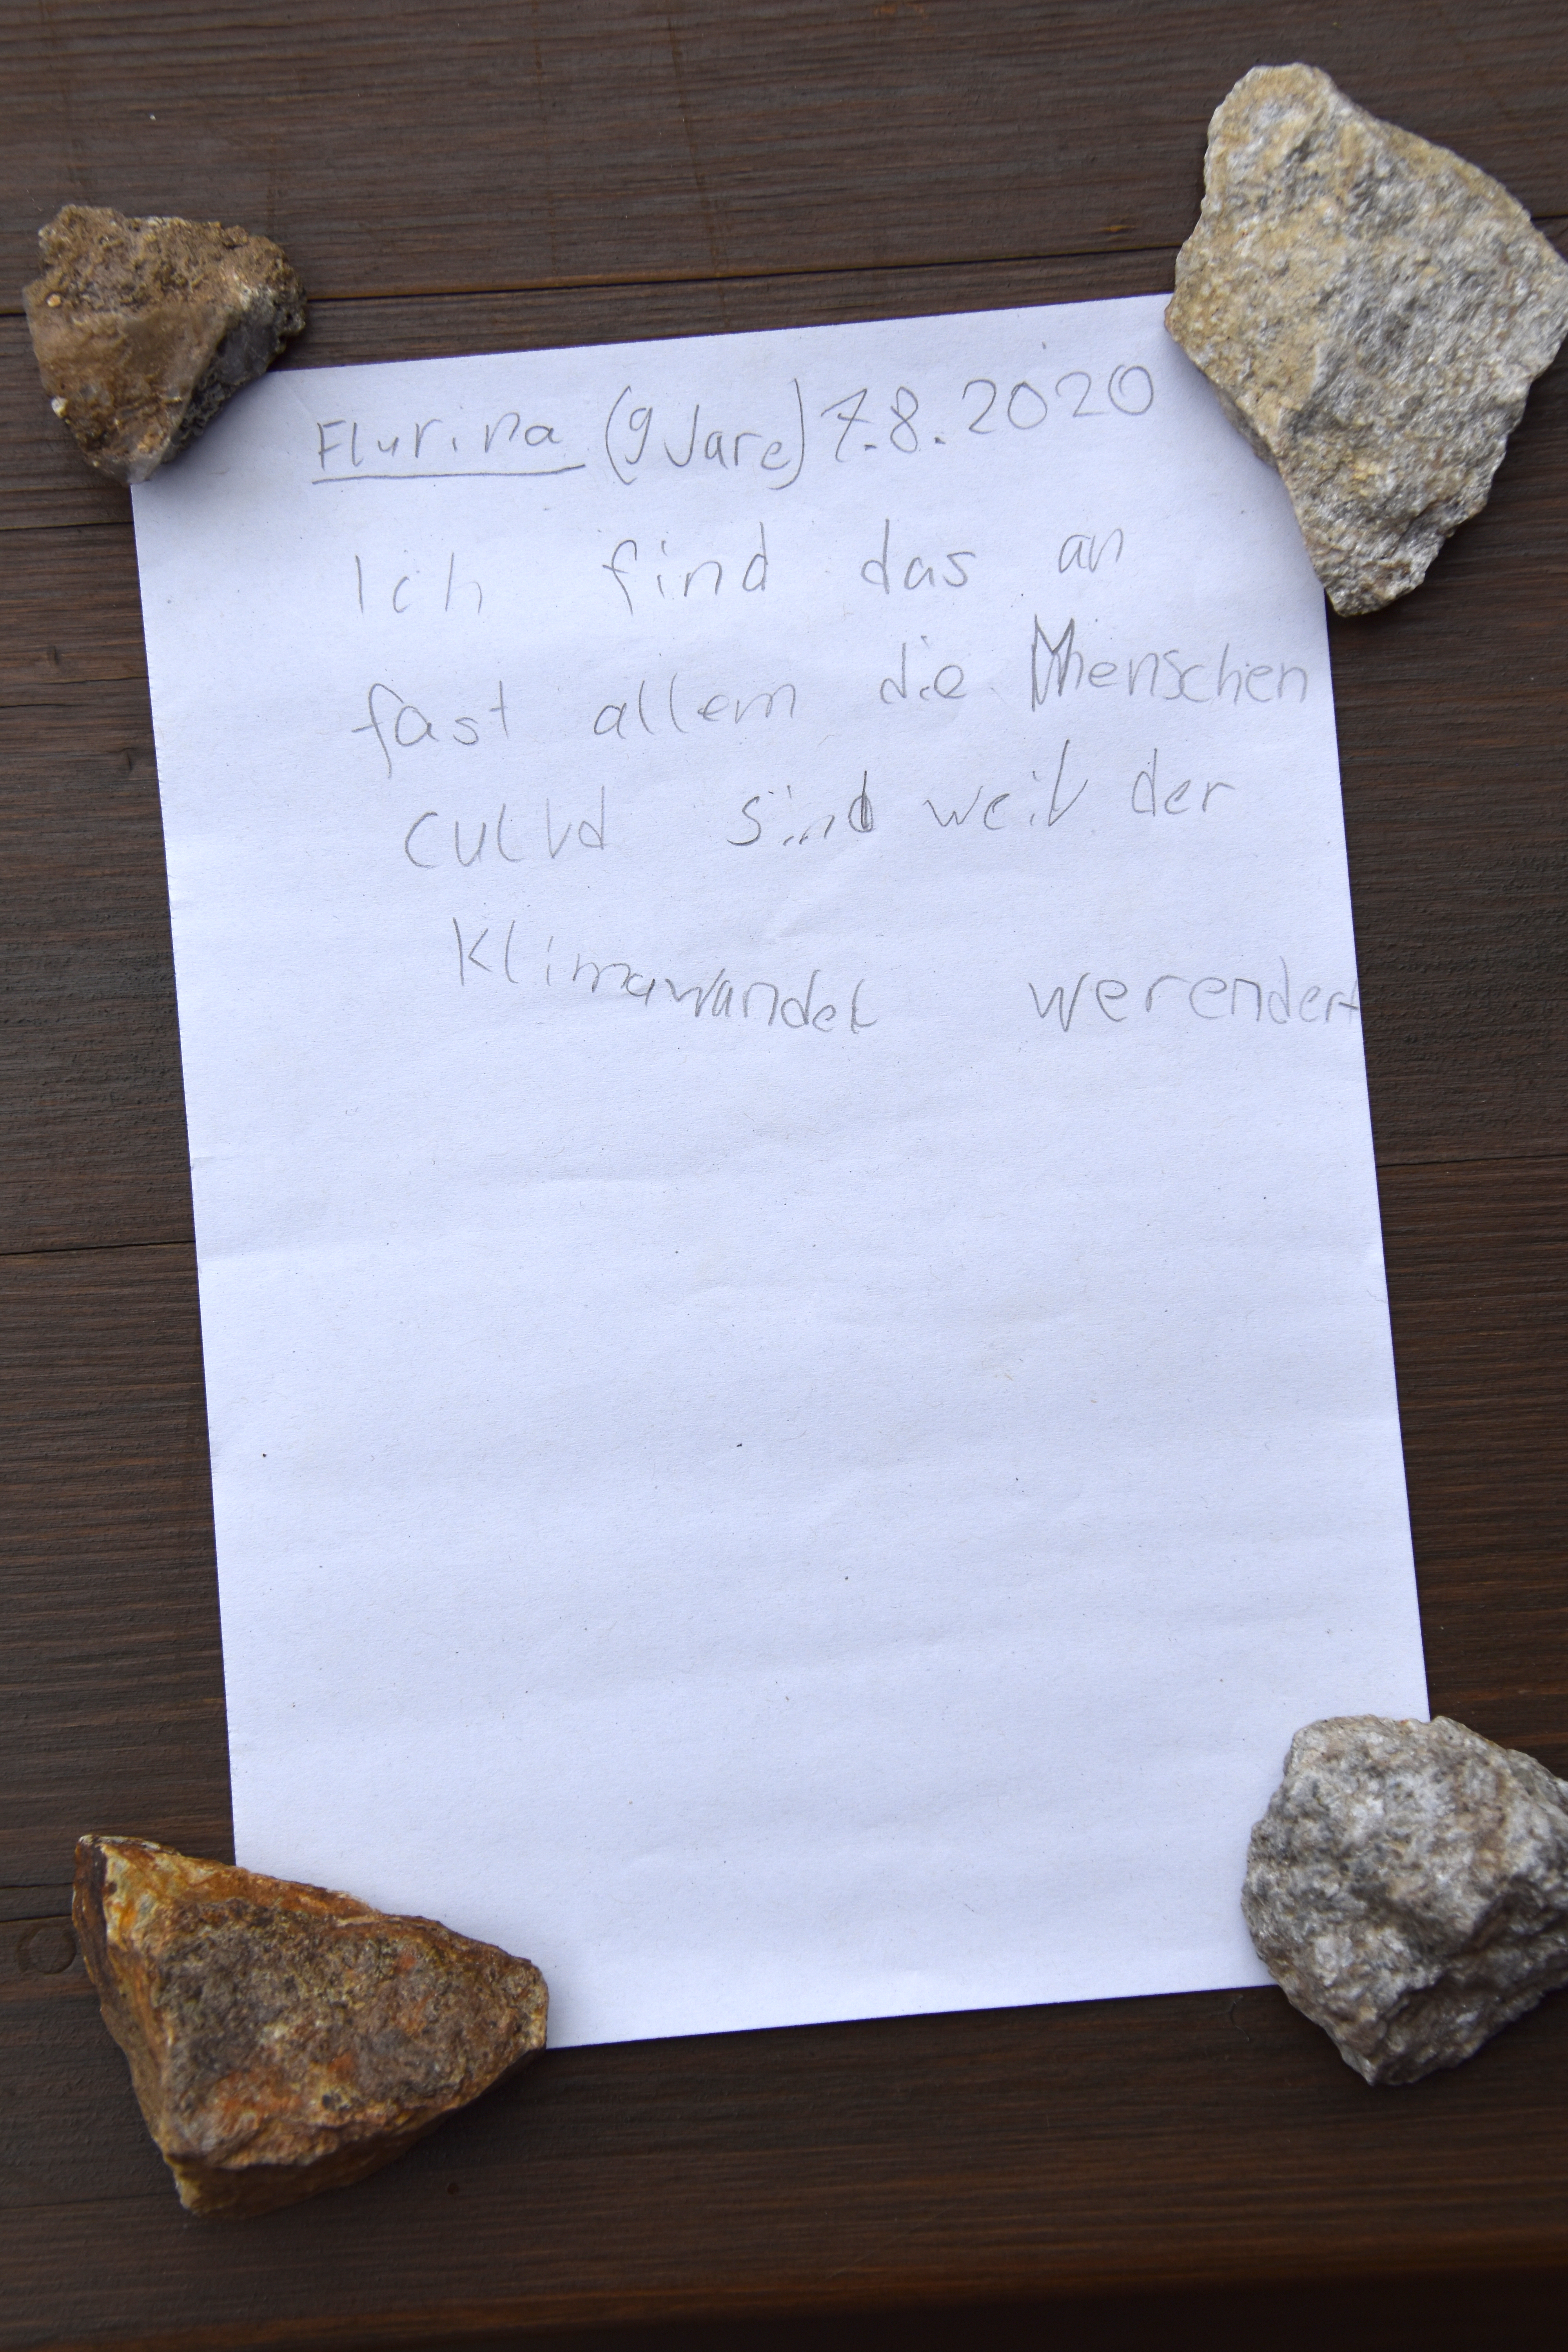 Flurina (9 Jare) 7.8.2020
Ich find das an
fast allem die Menschen
culld sind weil der
Klimawandel werendert